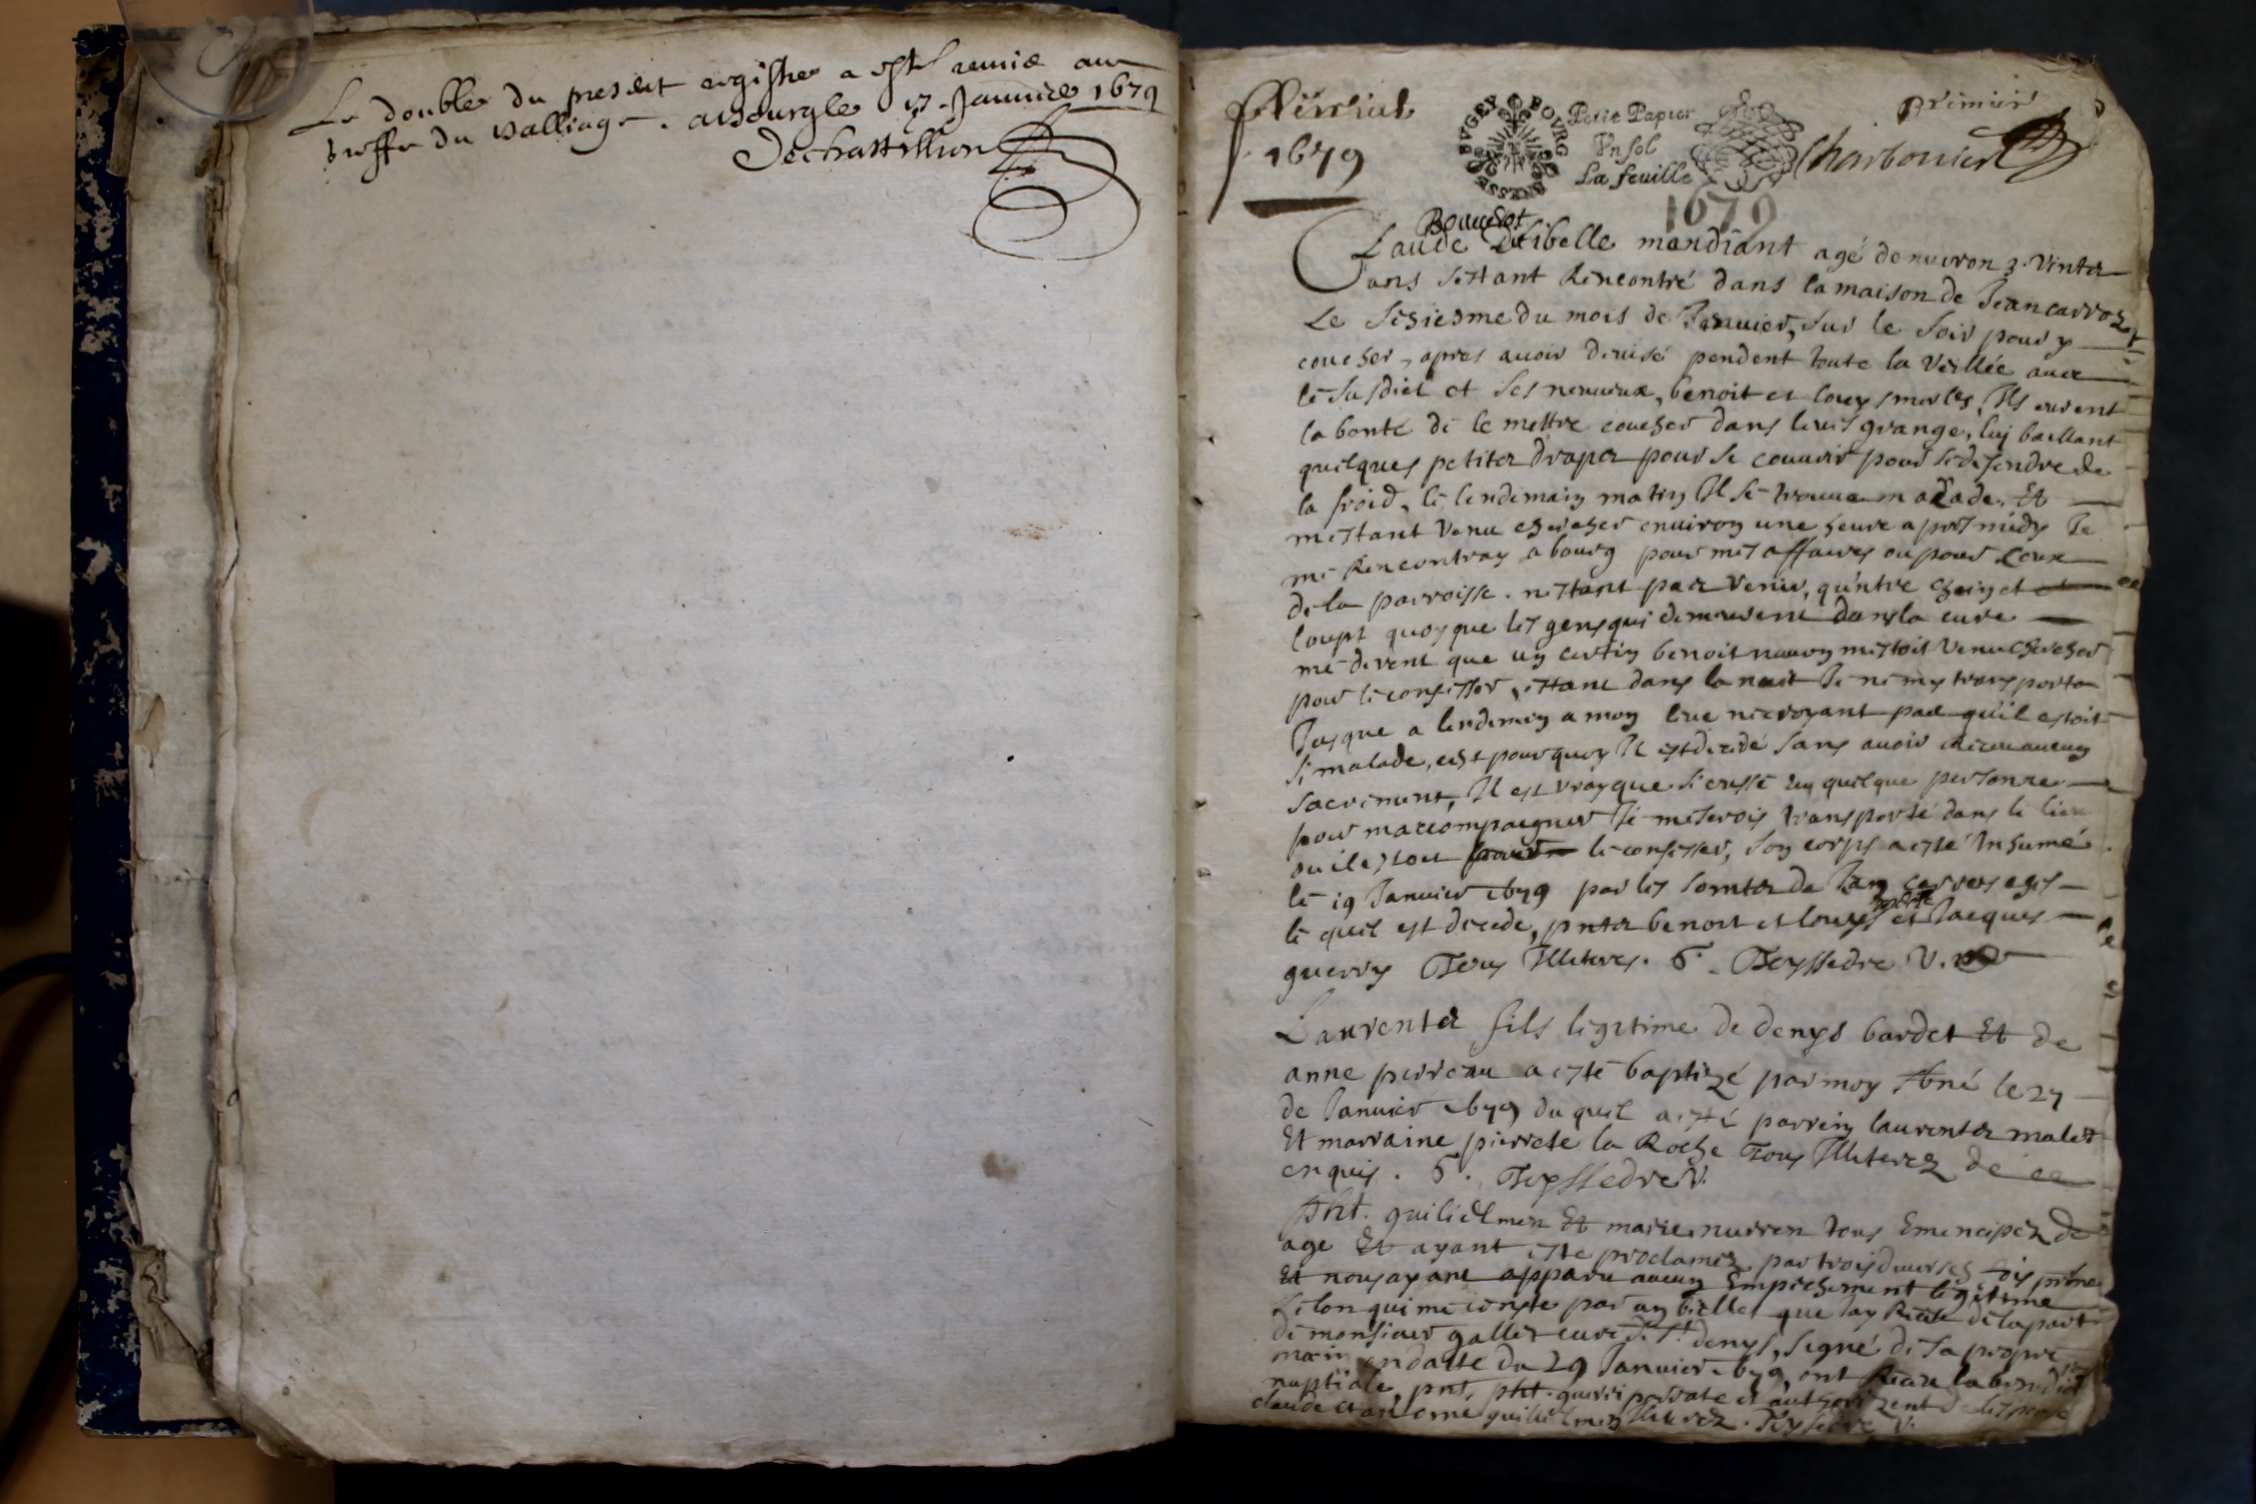 Le double du present registre a esté remis au
Greffe du Balliage. a Bourg le 17 Janvier 1679
Dechastillion
Premier
1679
BVGEY BOVRG
Petit Papier
Vn sol
La feuille
Charbonier
1679
Claude mandiant agé denuiron 3. vinter
ans sestant Rencontré dans la maison de Jean carroz
Le sesiesme du mois de Januier, sur le soir pour y
coucher, apres auoir deuisé pendent toute la veillée auec
le susdict et ses neuueux, benoit et louys merles, Ils eurent
la bonté de le mettre coucher dans leur grange, luy baillant
quelques petiter draper pour se couurir pour se defendre de
la froid, le lendemain matin Il se trouua malade, Et
mestant venu chercher enuiron une heure apres midy Je
me Rencontray a bourg pour mes affaires ou pour ceux
de la parroisse. nestant par venu, quentre chein et
loupt quoyque les gens qui demeurent dans la cure
me dirent que un certin benoit mestoit venu chercher
pour le confesser, estant dans la nuit Je ne my transporta
Jusque a lendemin a mon leue ne croyant pas qu'il estoit
si malade, cest pourquoy Il est decedé sans auoir Receu aucun
sacrement, Il est vray que si eusse eu quelque personne
pour maccompaigner Je me serois transporté dans le lieu
ou il estoit le confesser, son corps a esté Inhumé
le 19 Januier 1679 par les de Jean
le quel est decede, pnter benoit et louys et Jacques
guerry Tous Illiteres. G. Teyssedre V.
Laurenter fils legitime de denys bardet Et de
anne perreau a esté baptizé par moy sbné le 27
de Januier 1679 du quel a esté parrein laurenter malet
Et marraine pierrete la Roche Tous Illiterez de ce
enquis. G. Teyssedre V.
Pht. guilielmen Et marie nurren tous Emencipez de
age Et ayant esté proclamez par trois diuerses fois prone
Et nous ayant apparu aucun Empechement legitime
selon qui me conste par un billet que Jay Receu de la part
de monsieur gallet curé de St. denys, signé de sa propre
main en datte du 29 Januier 1679, ont Receu la benedict
nuptiale, pnts, pht.
claude guilielmen Illiterez. Teyssedre V.